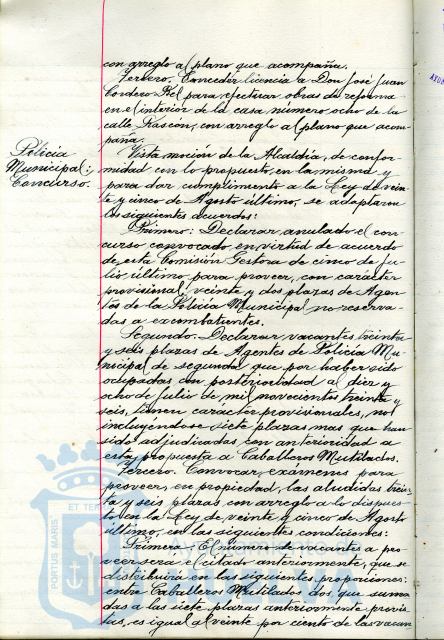 con arreglo al plano que acompaña.
Tercero. Conceder licencia a Don José Juan
Cordero Rel para efectuar obras de reforma
en el interior de la casa número ocho de la
calle Rascón, con arreglo al plano que acom-
paña.
Policia
Municipal:
Concurso.
Vista moción de la Alcaldía, de confor-
midad con lo propuesto en la misma y
para dar cumplimiento a la Ley de vein-
te y cinco de Agosto último, se adoptaron
los siguientes acuerdos:
Primero: Declarar anulado el con-
curso convocado en virtud de acuerdo
de esta Comisión Gestora de cinco de Ju-
lio último para proveer, con carácter
provisional, veinte y dos plazas de Agen-
tes de la Policía Municipal no reserva-
das a excombatientes.
Segundo. Declarar vacantes treinta
y seis plazas de Agentes de Policía Mu-
nicipal de segunda que por haber sido
ocupadas con posterioridad al diez y
ocho de Julio de mil novecientos treinta y
seis, tienen carácter provisionales, no
incluyéndose siete plazas mas que han
sido adjudicadas con anterioridad a
esta propuesta a Caballeros Mutilados.
Tercero. Convocar, exámenes para
proveer, en propiedad, las aludidas trein-
ta y seis plazas, con arreglo a lo dispues-
to en la Ley de veinte y cinco de Agosto
último, en las siguientes condiciones:
Primera: El número de vacantes a pro-
veer será el citado anteriormente, que se
distribuirá en las siguientes proporciones:
entre Caballeros Mutilados dos que suma-
das a las siete plazas anteriormente provis-
tas, es igual al veinte por ciento de las vacan
PORTUS MARIS
ET TER